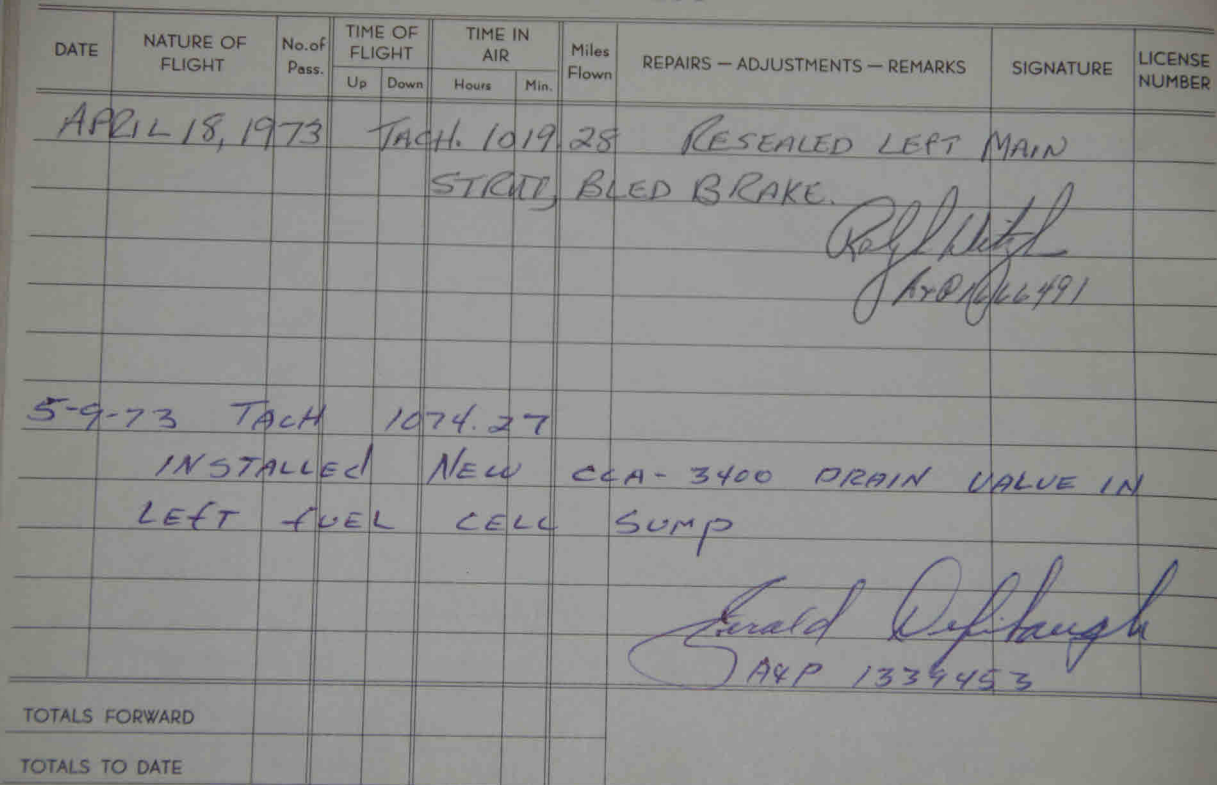 DATE NATURE OF FLIGHT No.of Pass. TIME OF FLIGHT Up Down TIME IN AIR Hours Min. Miles Flown REPAIRS — ADJUSTMENTS — REMARKS SIGNATURE LICENSE NUMBER
APRIL 18, 1973 TACH. 1019.28 RESEALED LEFT MAIN
STRUT, BLED BRAKE.
5-9-73 TACH 1074.27
INSTALLEd NEW CCA-3400 DRAIN VALVE IN
LEfT fUEL CELL SUMP
Gerald
A&P 1339453
TOTALS FORWARD
TOTALS TO DATE